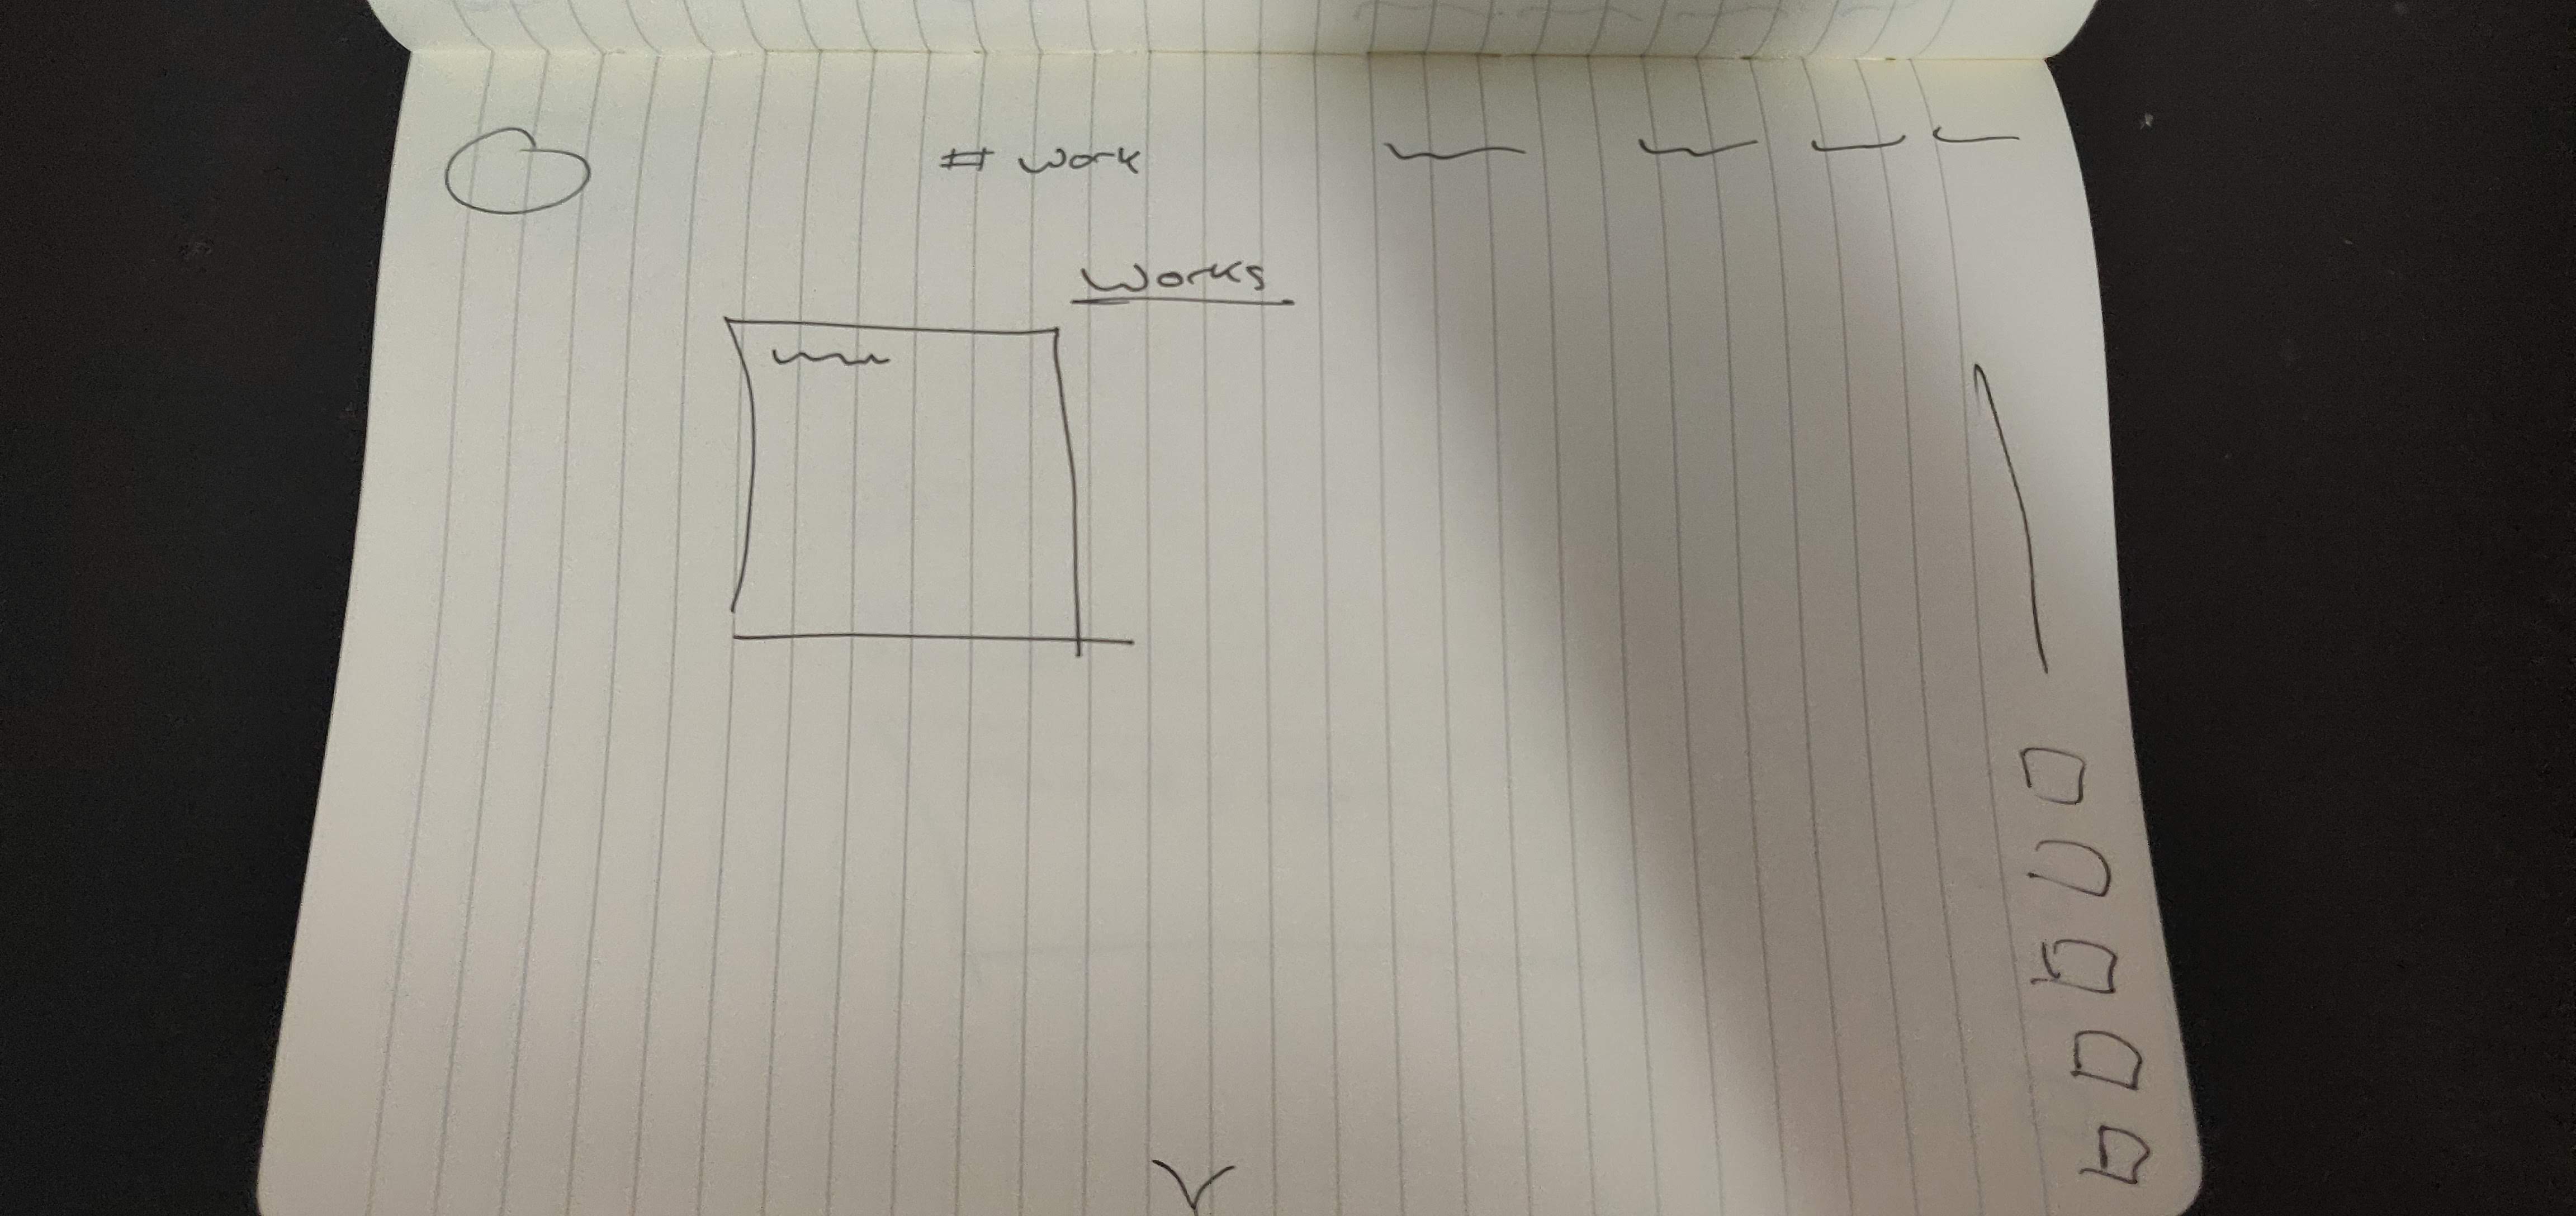 # work
Works